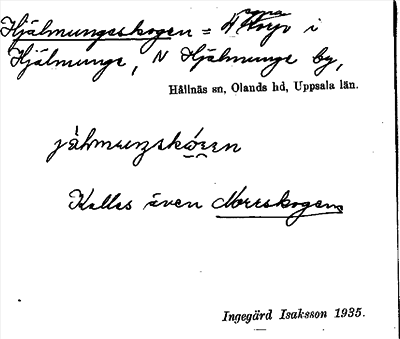 Hjälmungeskogen = i
Hjälmunge, N Hjälmunge by,
Hållnäs sn, Olands hd, Uppsala län.
Kallas även Norrskogen
Ingegärd Isaksson 1935.